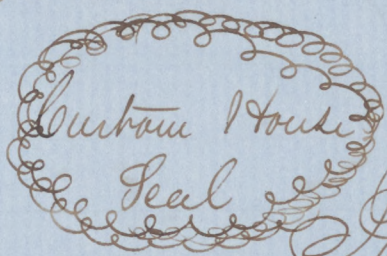 Custom House
Seal